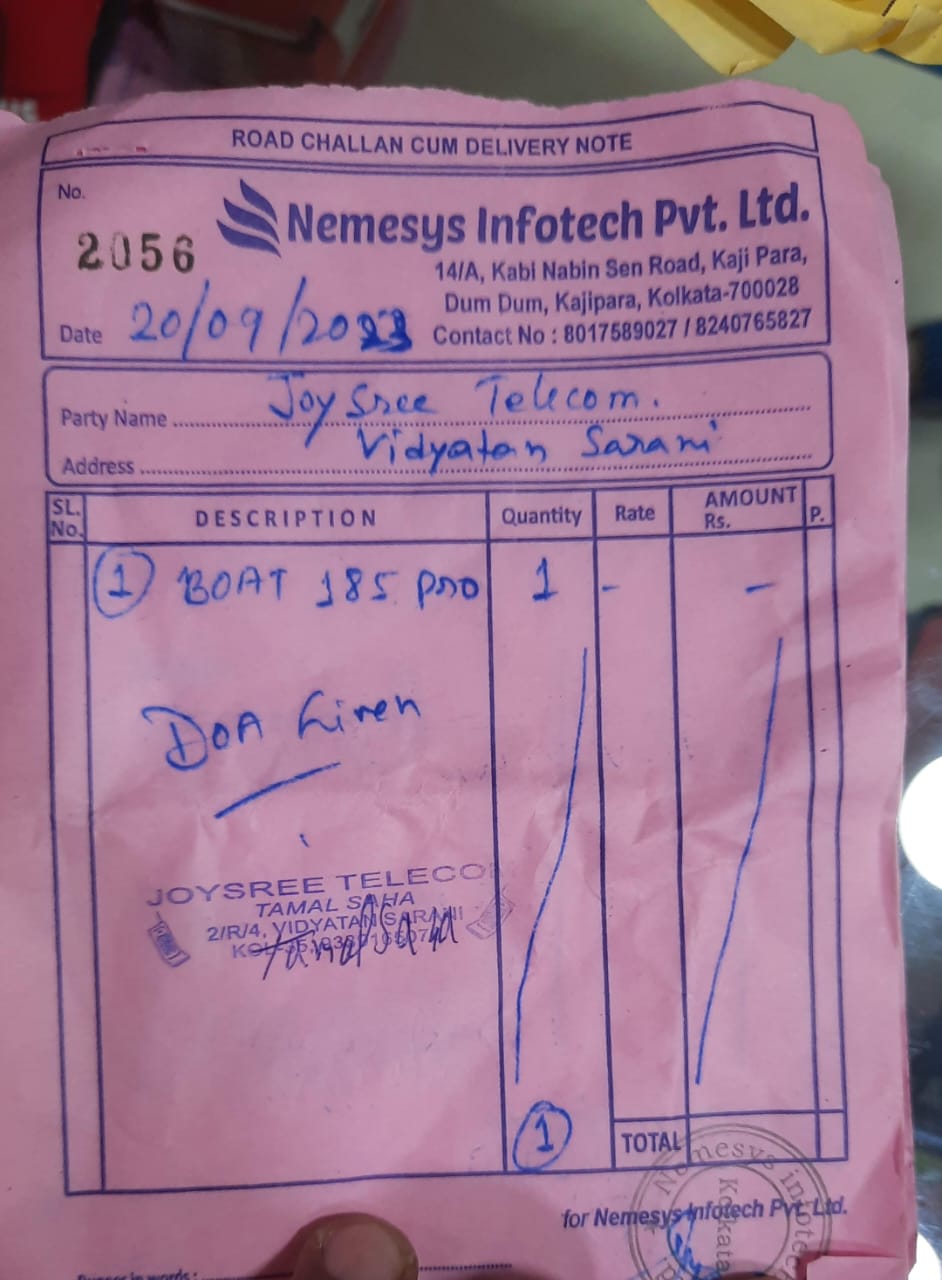 ROAD CHALLAN CUM DELIVERY NOTE
No.
2056
Nemesys Infotech Pvt. Ltd.
14/A, Kabi Nabin Sen Road, Kaji Para,
Dum Dum, Kajipara, Kolkata-700028
Contact No : 8017589027 / 8240765827
Date 20/09/2023
Party Name Joy Sree Telecom.
Address Vidyatan Sarani
SL. No. DESCRIPTION Quantity Rate AMOUNT Rs. P.
1 BOAT 185 pro 1 - -
DOA Given
JOYSREE TELECO
TAMAL SAHA
2/R/4, VIDYATAN SARANI
Tamal Saha
1 TOTAL
for Nemesys Infotech Pvt. Ltd.
Nemesys Infotec
Kolkata